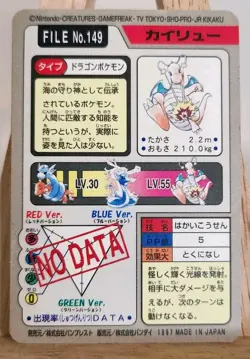 ©Nintendo・CREATURES・GAMEFREAK・TV TOKYO・SHO-PRO・JR KIKAKU
FILE No.149
カイリュー
タイプ
ドラゴンポケモン
海の守り神として伝承
されているポケモン。
人間に匹敵する知能を
持つというが、実際に
姿を見た人は少ない。
たかさ 2.2m
おもさ 210.0kg
LV.30
LV.55
RED Ver.
(レッドバージョン)
BLUE Ver.
(ブルーバージョン)
NO DATA
GREEN Ver.
(グリーンバージョン)
出現率(しゅつげんりつ)DATA
技名
はかいこうせん
PP値
5
効果大
とくになし
怪しく輝く光線を発射。
相手に大ダメージを与
えるが、次回のターンは
動けなくなる。
発売元/株式会社バンプレスト 販売元/株式会社バンダイ 1997 MADE IN JAPAN